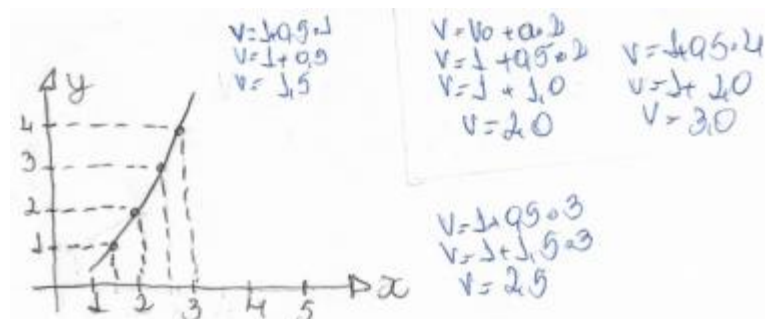 V=1+0,5.1
V=1+0,5
V=1,5
V=V0+a.2
V=1+0,5.2
V=1+1,0
V=2,0
V=1+0,5.4
V=1+2,0
V=3,0
V=1+0,5.3
V=1+1,5.3
V=2,5
y
4
3
2
1
1 2 3 4 5 x